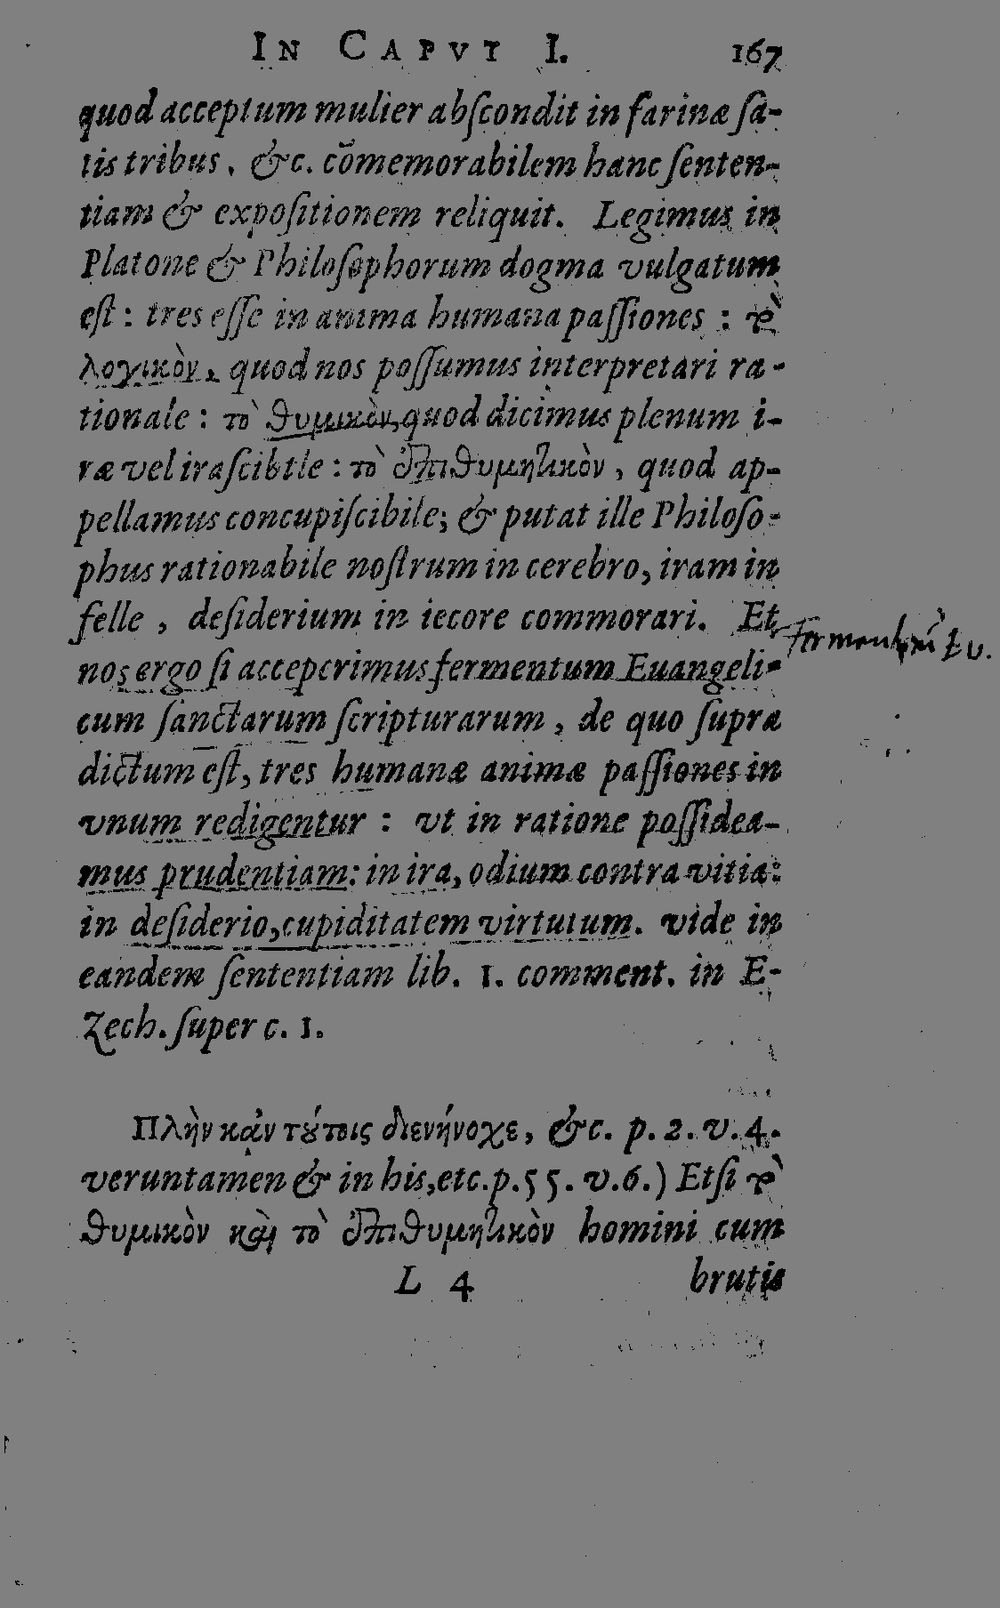 IN CAPVT I. 167
quod acceptum mulier abſcondit in farinæ ſa-
tis tribus, &c. cōmemorabilem hanc ſenten-
tiam & expoſitionem reliquit. Legimus in
Platone & Philoſophorum dogma vulgatum
eſt: tres eſſe in anima humana paſſiones: τὸ
λογικὸν, quod nos poſſumus interpretari ra-
tionale: τὸ θυμικὸν, quod dicimus plenum i-
ræ vel iraſcibile: τὸ ἐπιθυμητικὸν, quod ap-
pellamus concupiſcibile; & putat ille Philoſo-
phus rationabile noſtrum in cerebro, iram in
felle, deſiderium in iecore commorari. Et
nos ergo ſi acceperimus fermentum Euangeli-
cum ſanctarum ſcripturarum, de quo ſupra
dictum eſt, tres humanæ animæ paſſiones in
vnum redigentur: vt in ratione poſſidea-
mus prudentiam: in ira, odium contra vitia:
in deſiderio, cupiditatem virtutum. vide in
eandem ſententiam lib. 1. comment. in E-
zech. ſuper c. 1.
Πλὴν κἀν τούτοις διενήνοχε, &c. p. 2. v. 4.
veruntamen & in his, etc. p. 55. v. 6.) Etſi τὸ
θυμικὸν καὶ τὸ ἐπιθυμητικὸν homini cum
L 4 brutis